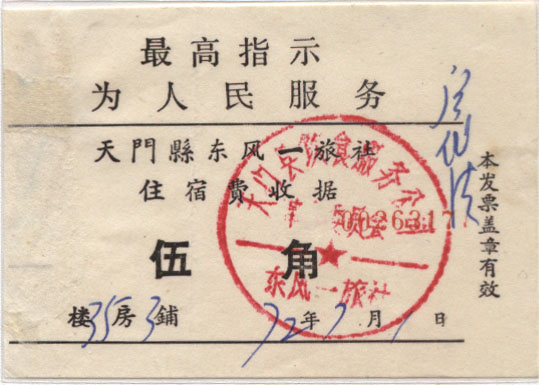 最高指示
为人民服务
天門縣东风一旅社
住宿費收据
伍角
楼35房3鋪 72年7月1日
本发票盖章有效
天门县饮食服务公司
0026317
东风一旅社